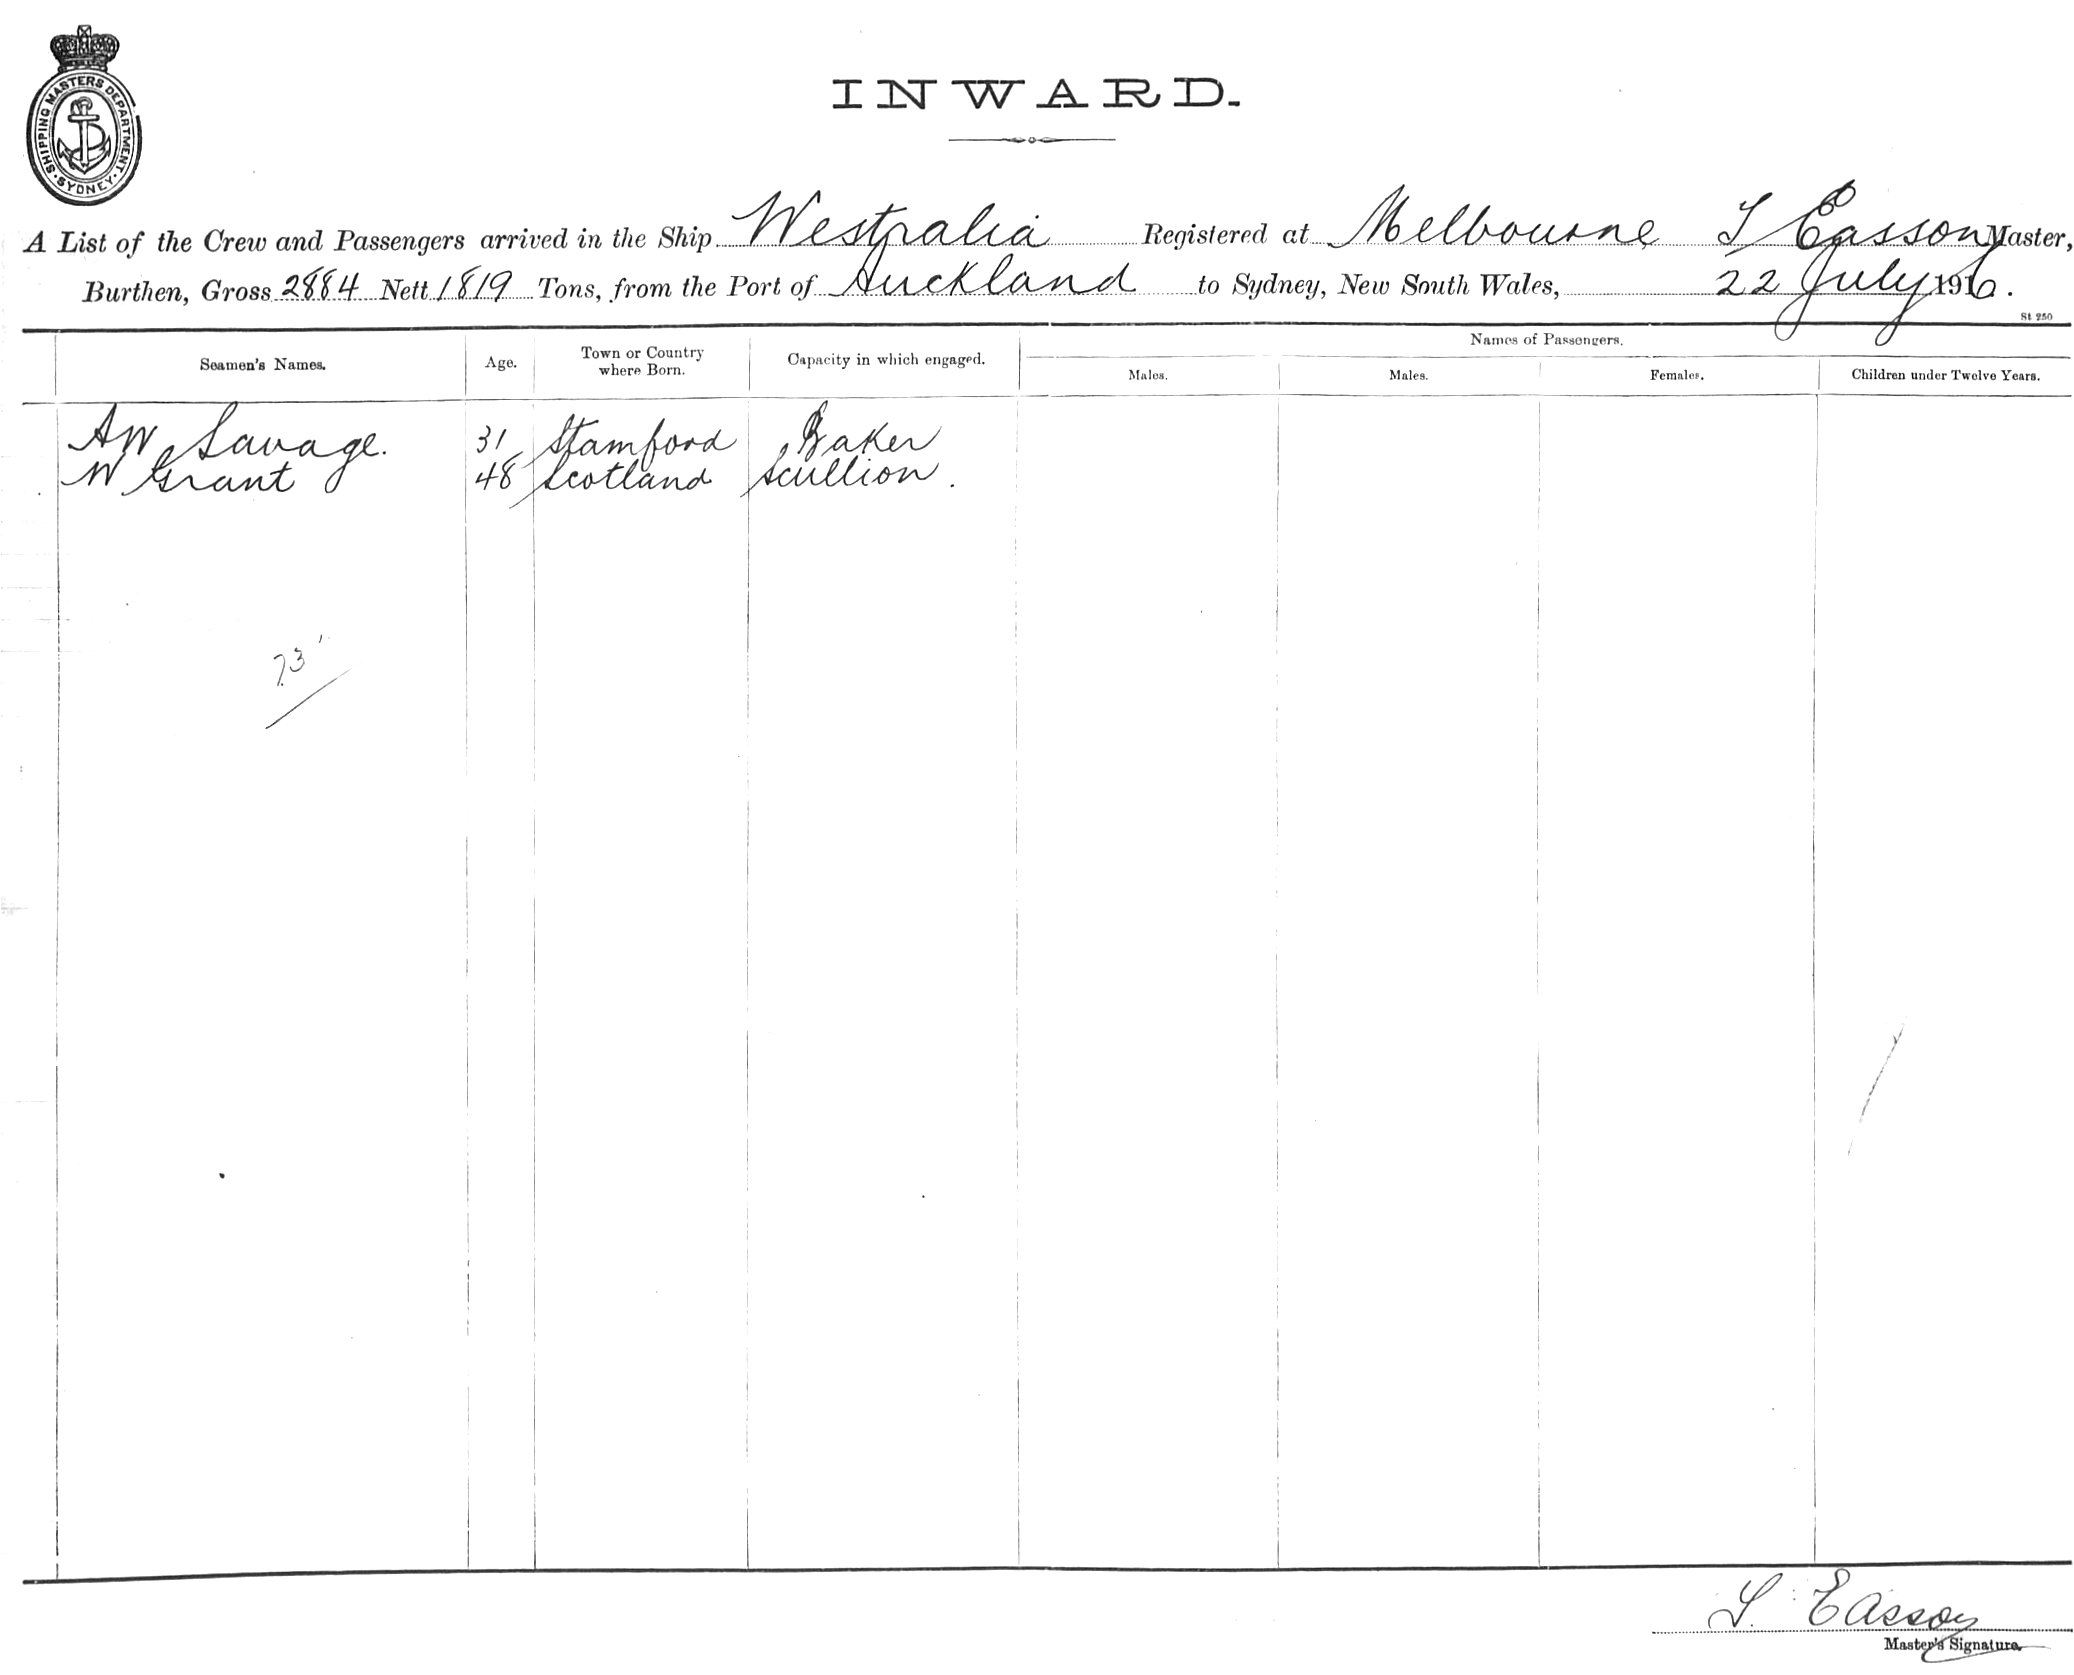 SHIPPING MASTERS DEPARTMENT. SYDNEY.
INWARD.
A List of the Crew and Passengers arrived in the Ship Westralia Registered at Melbourne Easson Master,
Burthen, Gross 2884 Nett 1819 Tons, from the Port of Auckland to Sydney, New South Wales, 22 July 1916.
St 250
Seamen's Names. Age. Town or Country where Born. Capacity in which engaged. Names of Passengers.
Males. Males. Females. Children under Twelve Years.
AW Savage. 31 Stamford Baker
W Grant 48 Scotland Scullion.
73
Easson
Master's Signature.